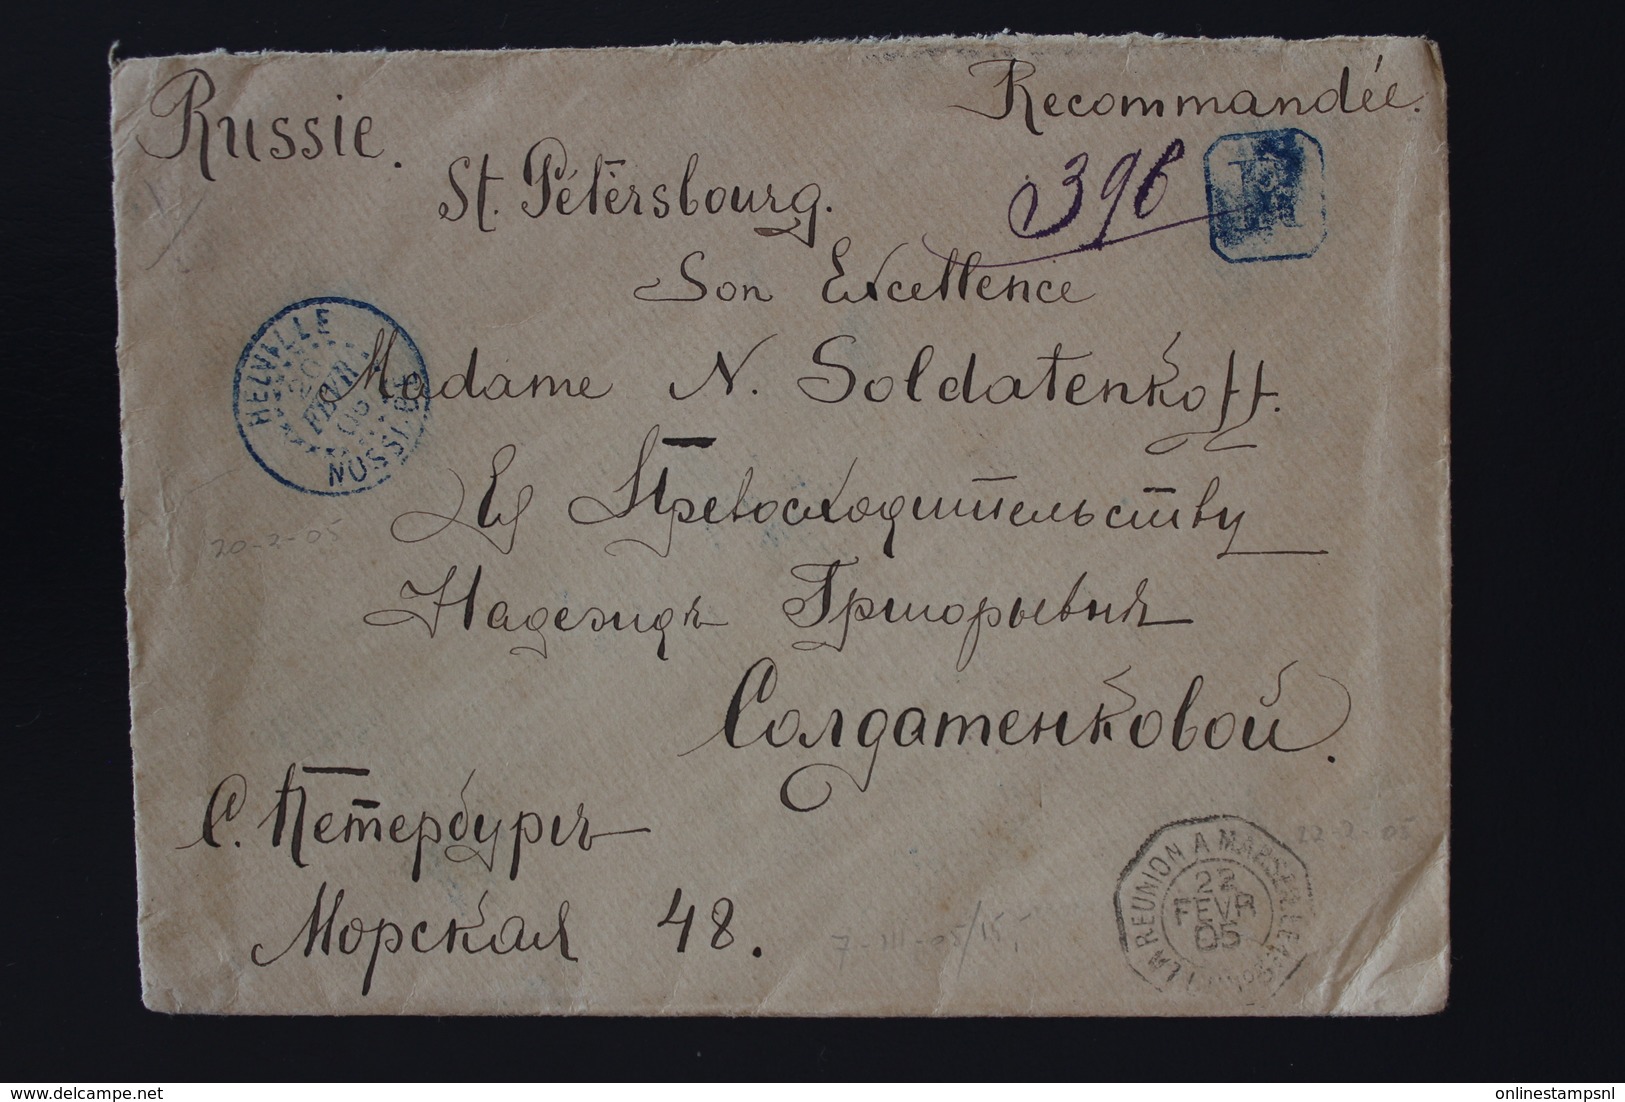 Russie.
Recommandée.
396
St. Pétersbourg.
Son Excellence
HELVILLE
20
FEVR
05
NOSSI-BE
Madame N. Soldatenkoff.
Ея Превосходительству
20-2-05
Надеждѣ Григорьевнѣ
Солдатенковой.
С. Петербургъ
Морская 48.
7-III-05/15
22-2-05
LA REUNION A MARSEILLE
22
FEVR
05
onlinestampsnl